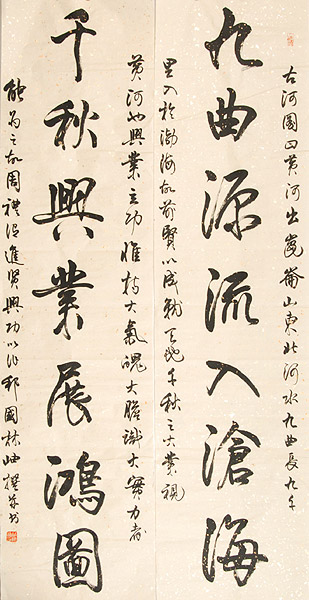 古河图曰黄河出崑崙山東北河水九曲長九千
九曲源流入滄海
里入於渤海故前賢以成就天地千秋之大業視
黄河如興業立功惟持大氣魄大膽識大實力者
千秋興業展鴻圖
能為之故周禮曰進賢興功以作邦國林岫撰并书